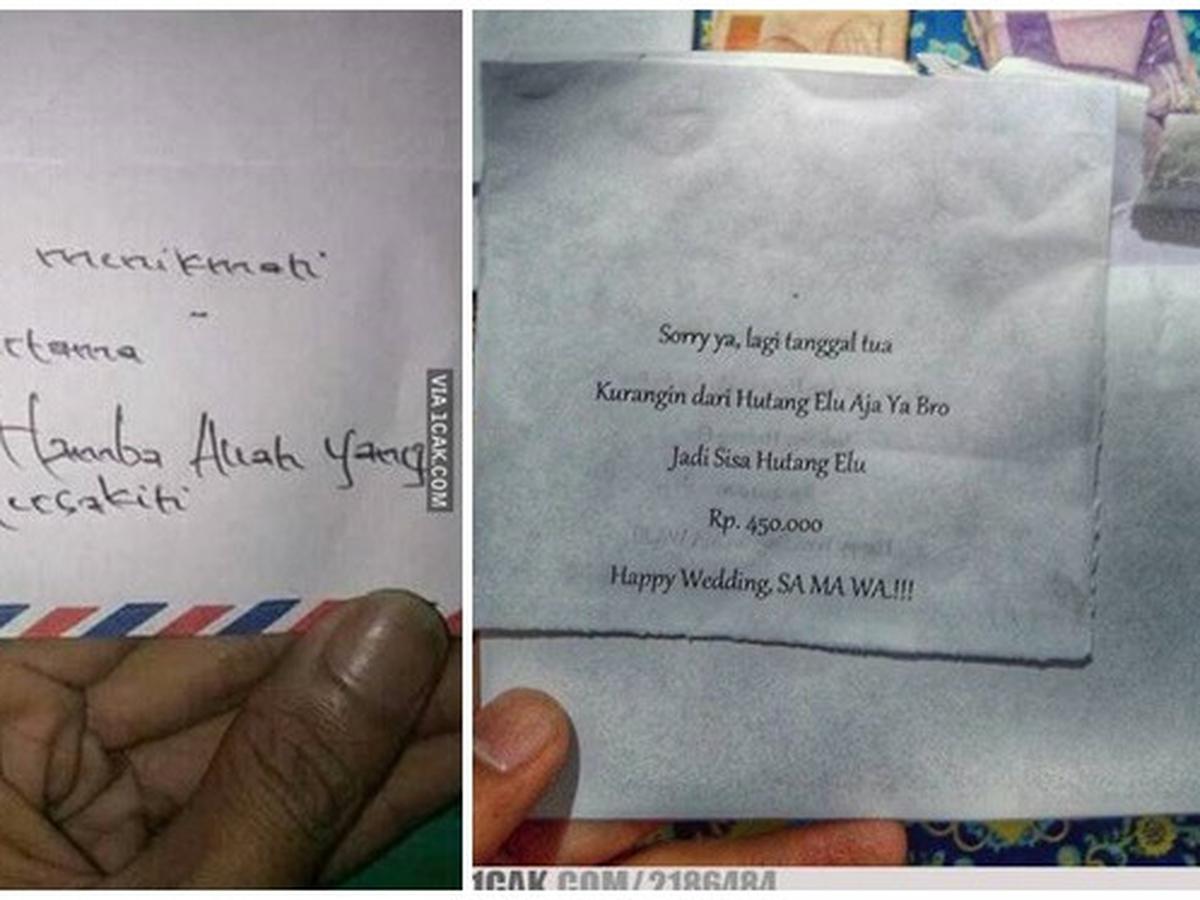 menikmati
-
rtama
Hamba Allah yang
ersakiti
VIA 1CAK.COM
Sorry ya, lagi tanggal tua
Kurangin dari Hutang Elu Aja Ya Bro
Jadi Sisa Hutang Elu
Rp. 450.000
Happy Wedding, SA MA WA.!!!
1CAK.COM/2186484